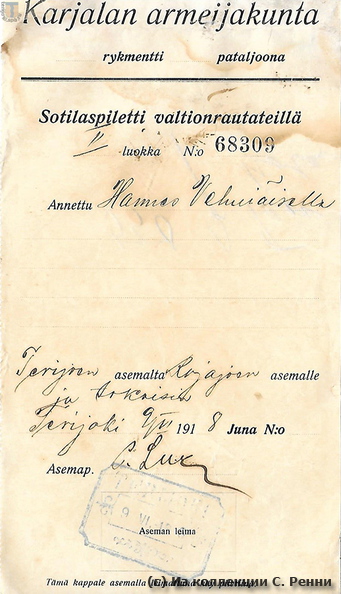 Karjalan armeijakunta
rykmentti pataljoona
Sotilaspiletti valtionrautateillä
II -luokka N:o 68309
Annettu Hannes Vehviäiselle
Terijoen asemalta Rajajoen asemalle
ja takaisin
Terijoki 9/VI 1918 Juna N:o
Asemap. C. Lux
Aseman leima
Tämä kappale asemalla
(c) Из коллекции С. Ренни